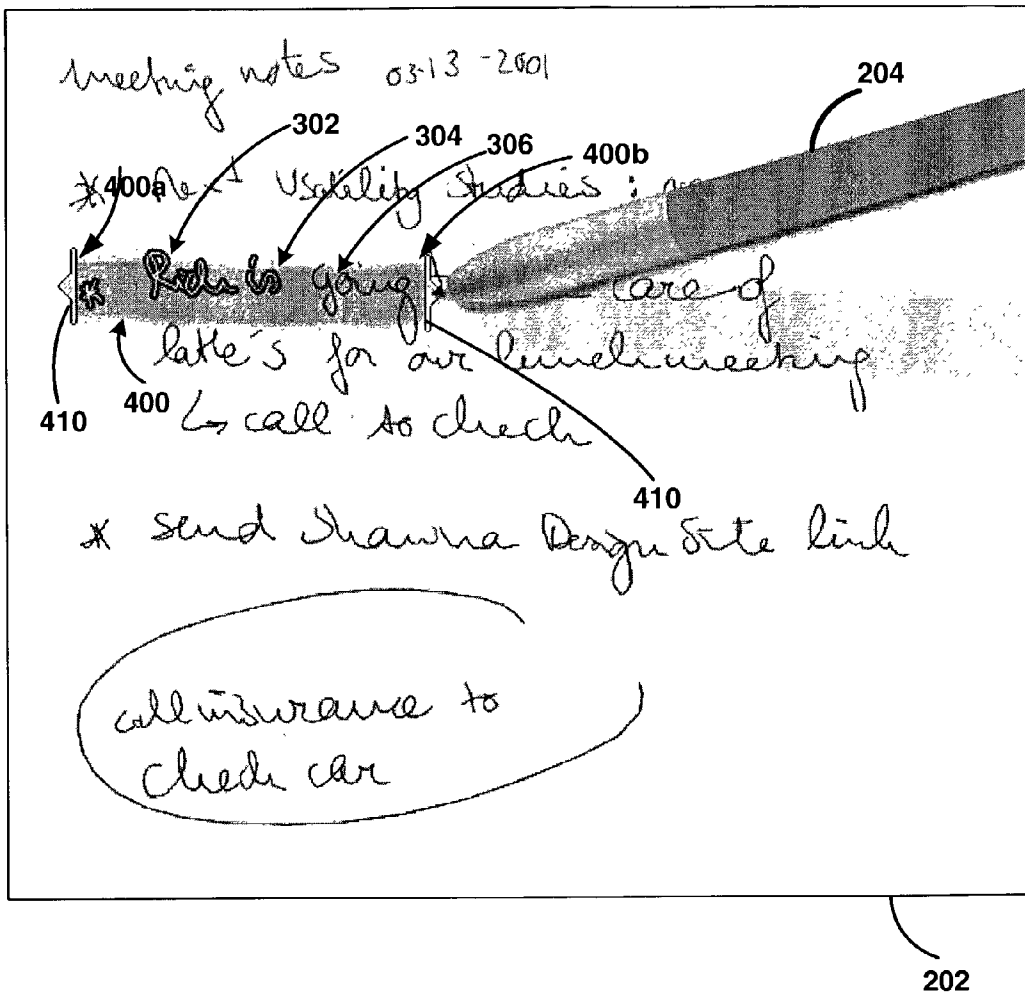 Meeting notes 03-13-2001
204
302 304 306 400b
* Next Usability Studies :
400a
* Rich is going care of
latte's for our lunch meeting
410 400 ↳ call to check
410
* Send Shawna Design Site link
call insurance to
check car
202